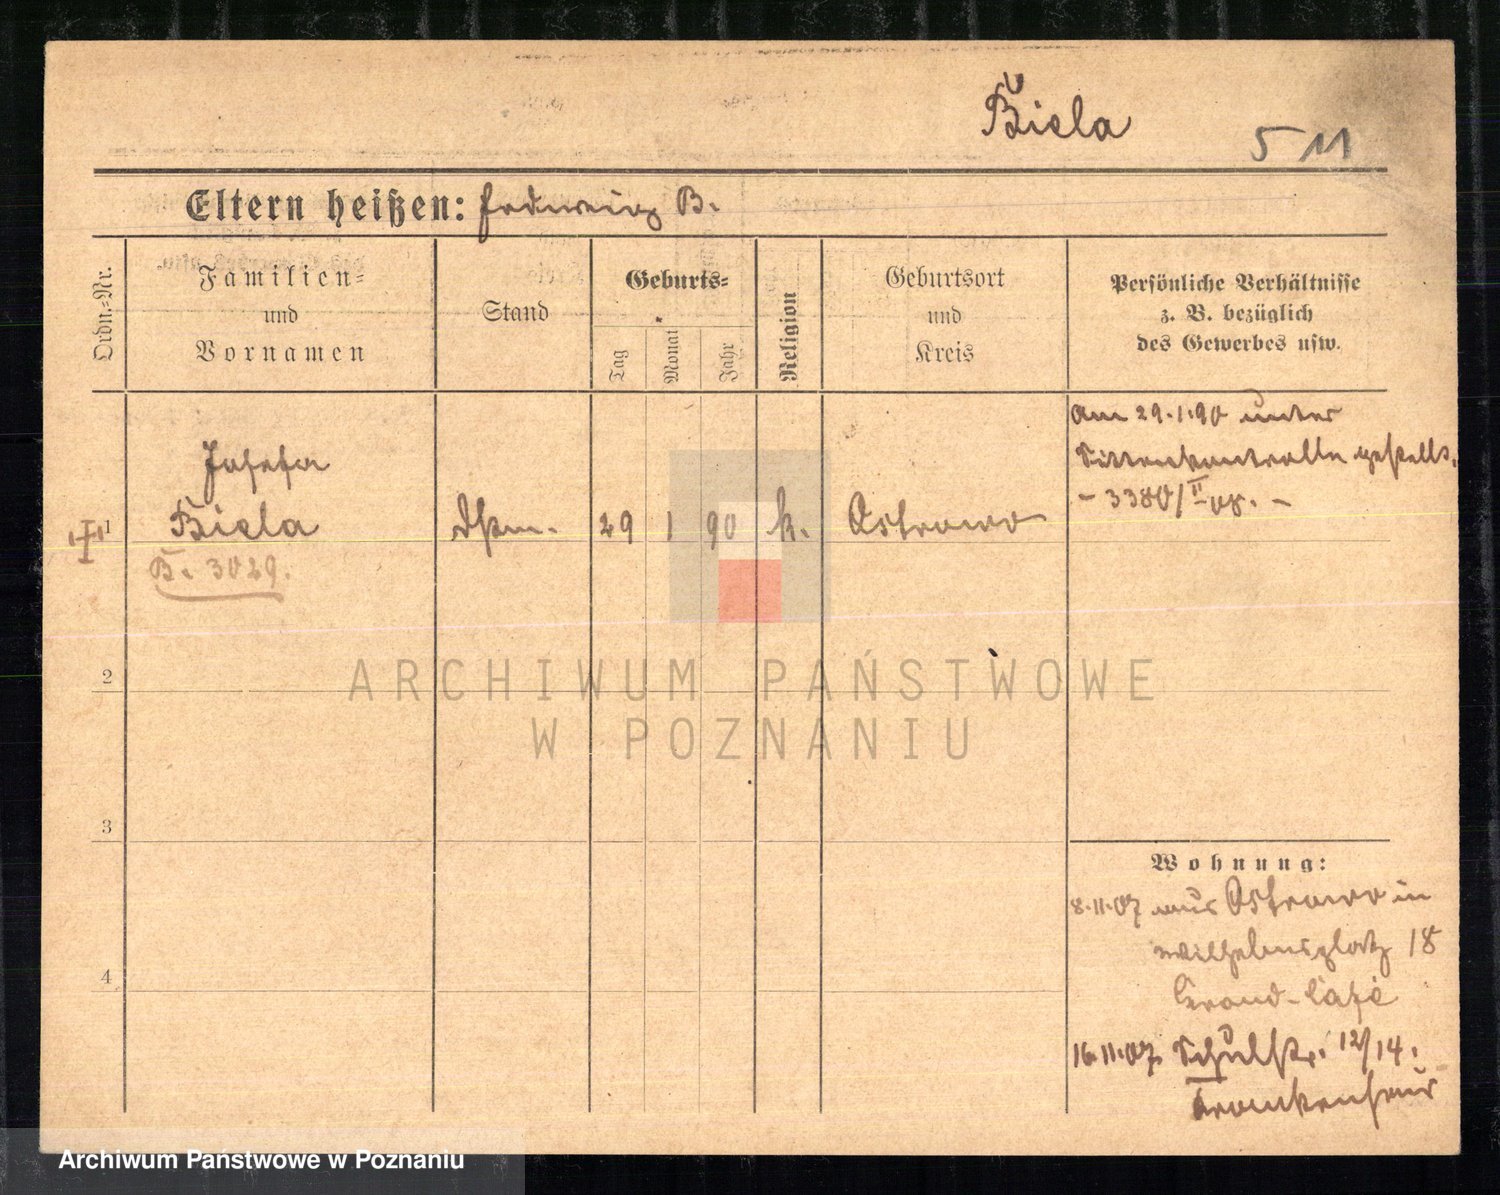 Biela
5 11
Eltern heißen: Hedwig B.
Ordn.=Nr.
Familien=
und
Vornamen
Stand
Geburts=
Tag
Monat
Jahr
Religion
Geburtsort
und
Kreis
Persönliche Verhältnisse
z. B. bezüglich
des Gewerbes usw.
1
Josefa
Biela
B. 3029.
29 1 90 k. Ostrowo
Am 29.1.90 unter
Sittenkontrolle gestellt.
- 3380/II
2
3
4
Wohnung:
8.11.07 aus Ostrowo in
Wilhelmsplatz 18
Grand-Café
16.11.07. Schulstr. 12/14.
Krankenhaus
ARCHIWUM PAŃSTWOWE
W POZNANIU
Archiwum Państwowe w Poznaniu